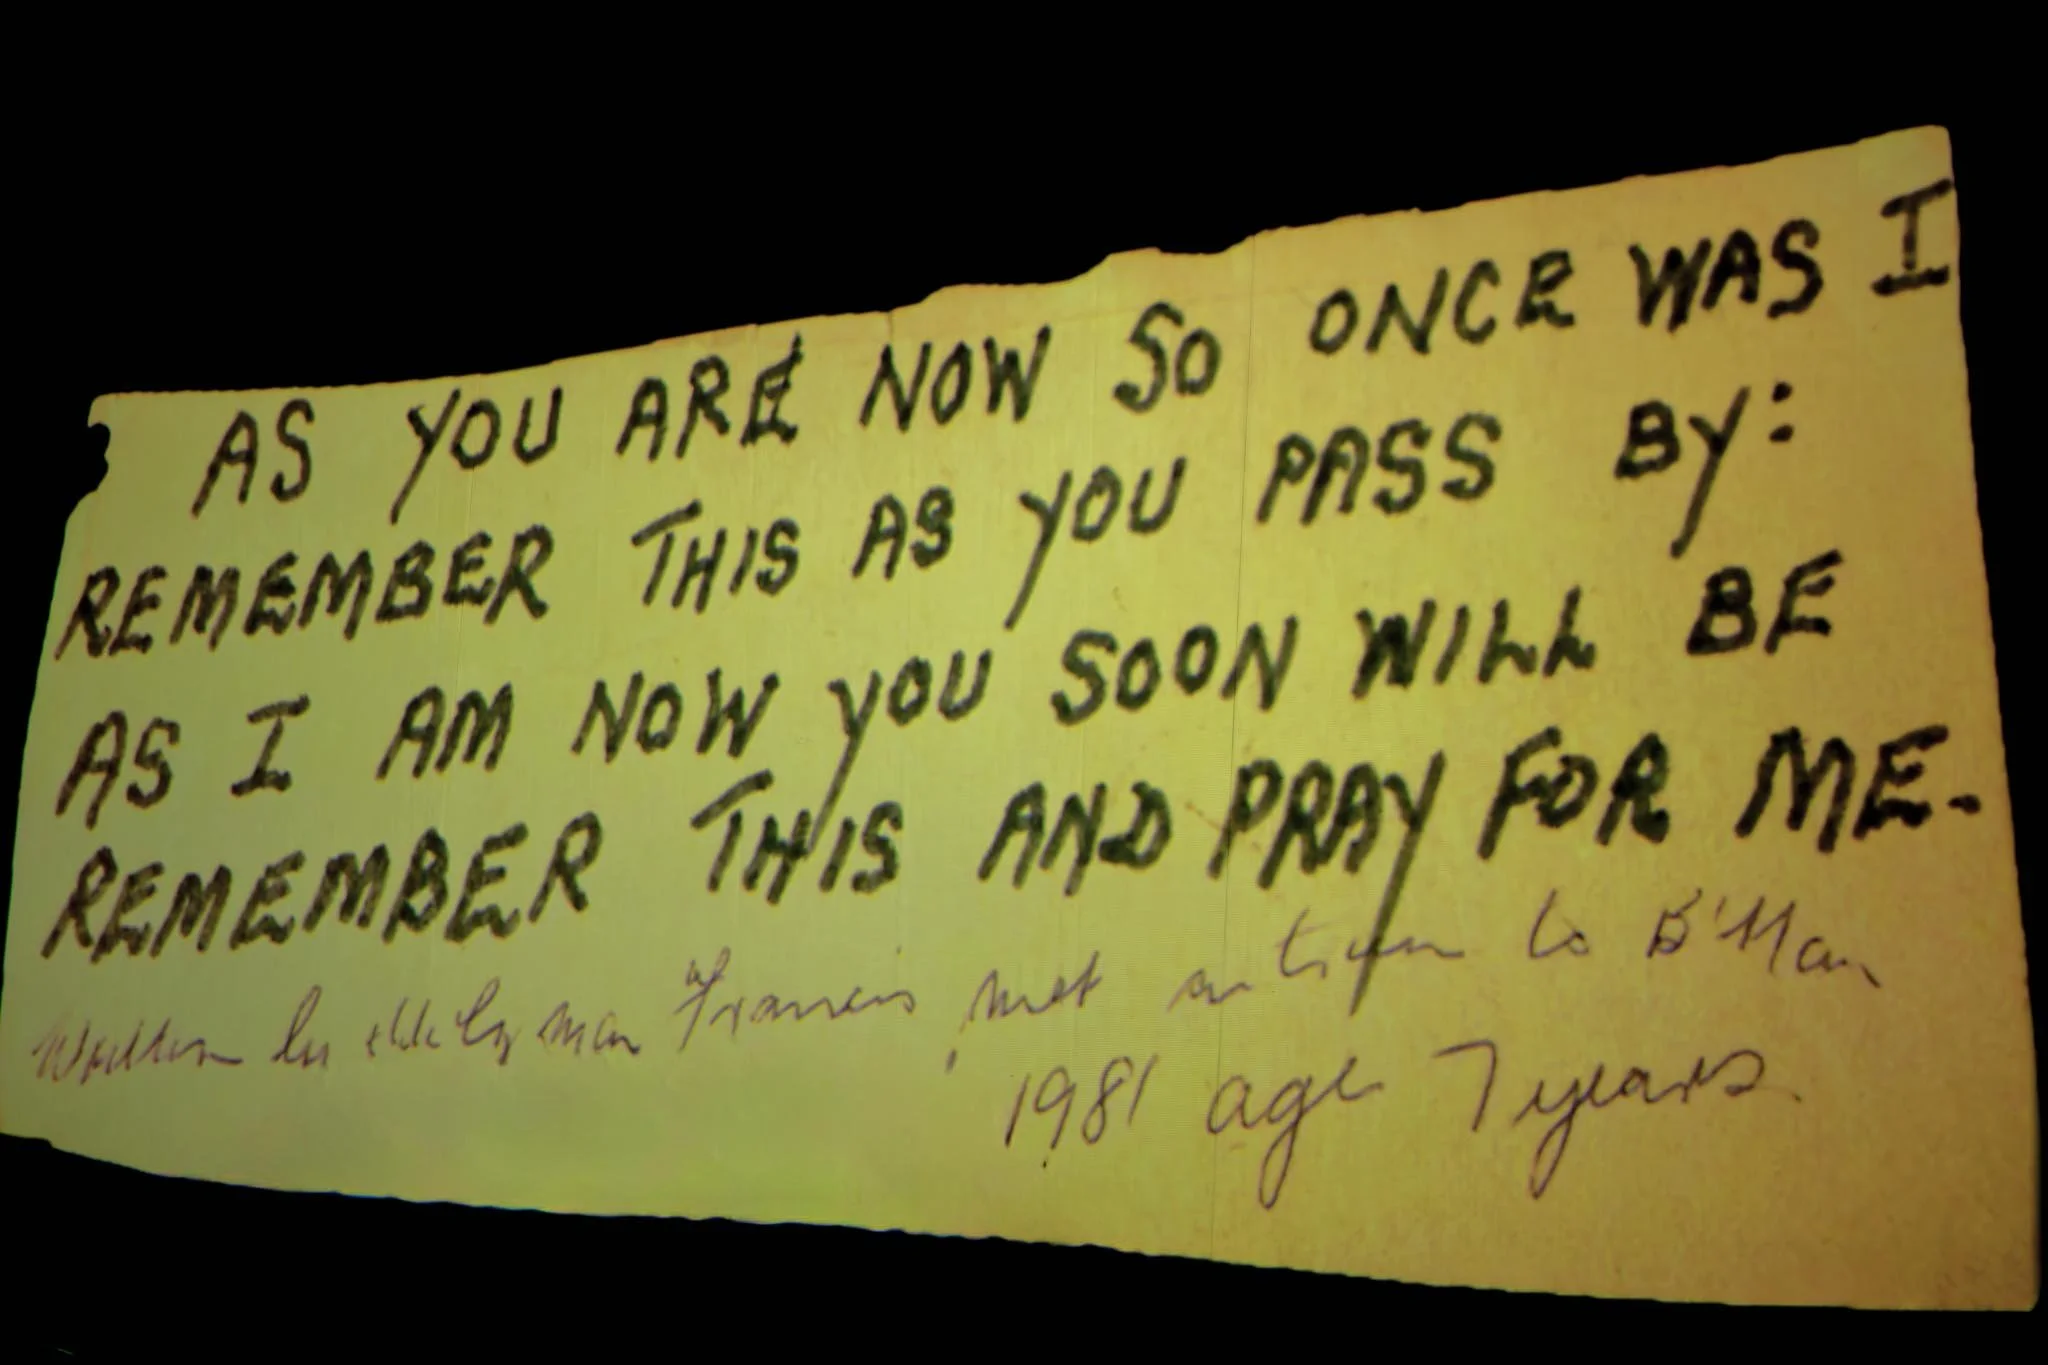 AS YOU ARE NOW SO ONCE WAS I
REMEMBER THIS AS YOU PASS BY:
AS I AM NOW YOU SOON WILL BE
REMEMBER THIS AND PRAY FOR ME.
Written by elderly man Francis, met on train to B'Ham
1981 age 7 years.